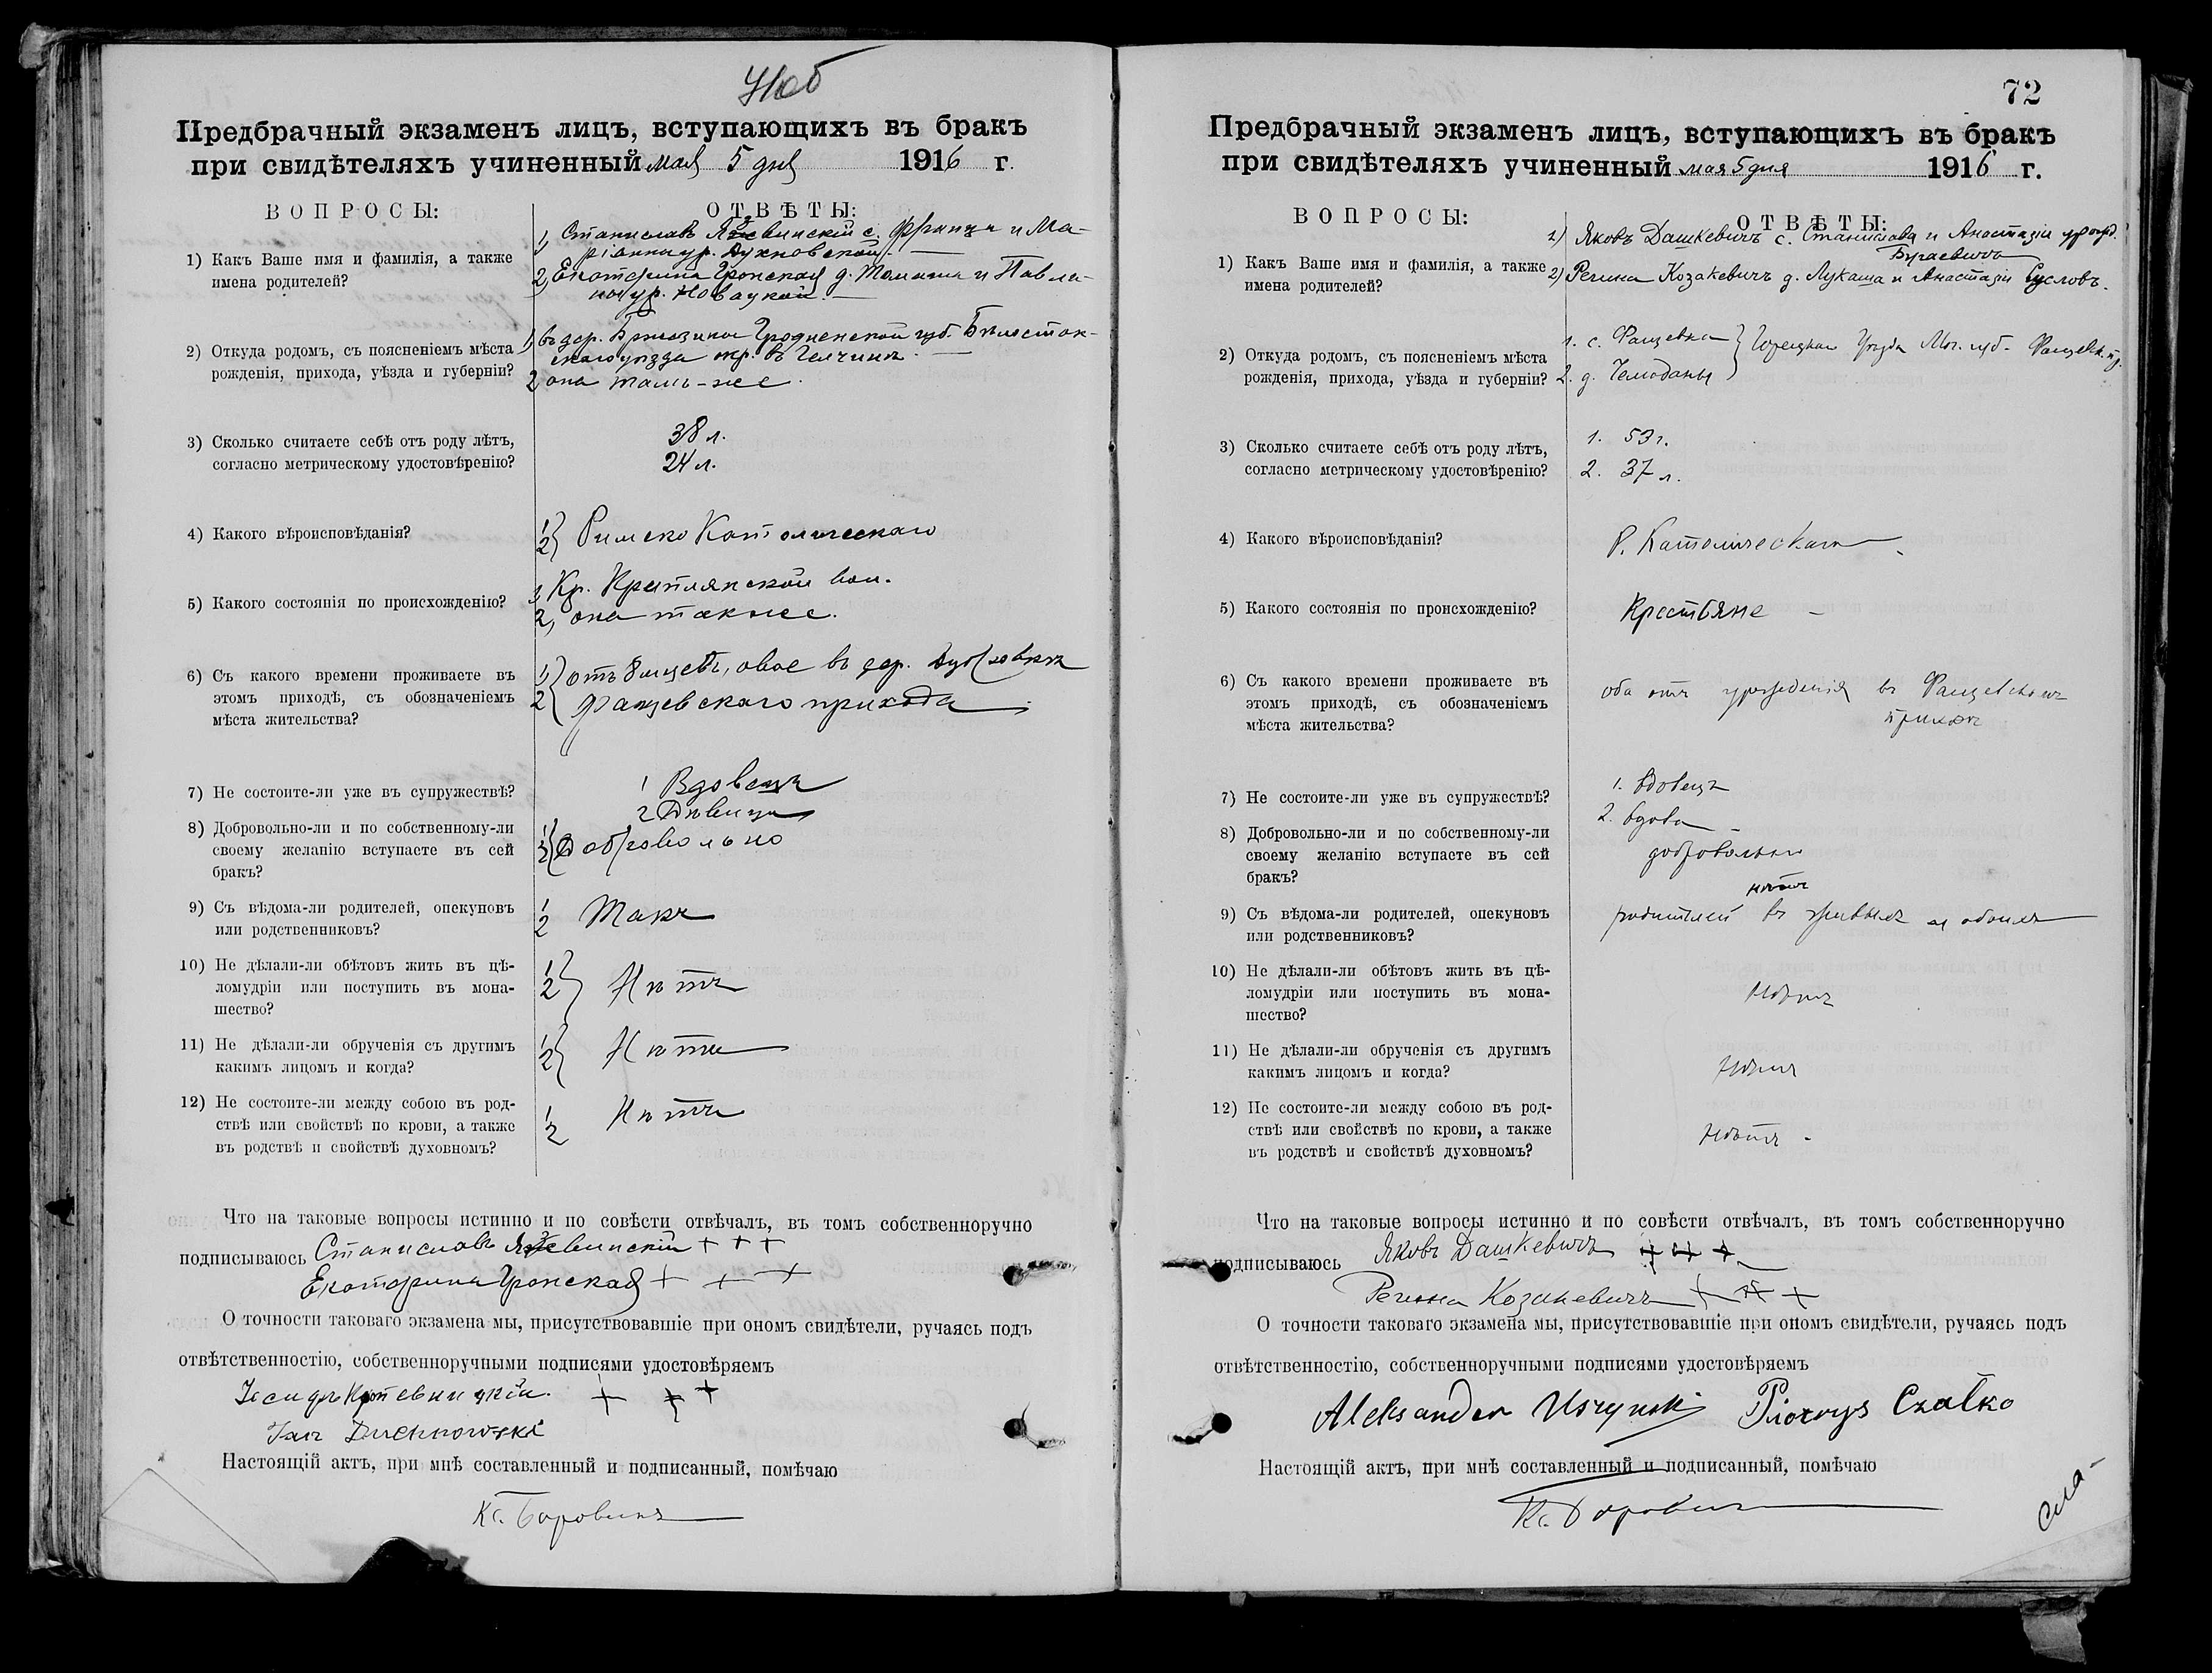 Предбрачный экзаменъ лицъ, вступающихъ въ бракъ
при свидѣтеляхъ учиненный мая 5 дня 1916 г.
ВОПРОСЫ:
ОТВѢТЫ:
1) Какъ Ваше имя и фамилія, а также
имена родителей?
1) Станиславъ с. Франца и Ма-
ріанны ур. Духновской.
2) Екатерина Гронская д. Томаша и Павли-
ны ур. Новацкой.
2) Откуда родомъ, съ поясненіемъ мѣста
рожденія, прихода, уѣзда и губерніи?
1) въ дер. Гродненской губ. Бѣлосток-
скаго уѣзда
2 она тамъ-же.
3) Сколько считаете себѣ отъ роду лѣтъ,
согласно метрическому удостовѣренію?
38 л.
24 л.
4) Какого вѣроисповѣданія?
1
2} Римско Католическаго
5) Какого состоянія по происхожденію?
1 Кр. вол.
2, она также.
6) Съ какого времени проживаете въ
этомъ приходѣ, съ обозначеніемъ
мѣста жительства?
1) отъ въ дер.
2 Фащевскаго прихода
7) Не состоите-ли уже въ супружествѣ?
1 Вдовецъ
2 Дѣвица
8) Добровольно-ли и по собственному-ли
своему желанію вступаете въ сей
бракъ?
1
2} Добровольно
9) Съ вѣдома-ли родителей, опекуновъ
или родственниковъ?
1
2 Такъ
10) Не дѣлали-ли обѣтовъ жить въ цѣ-
ломудріи или поступить въ мона-
шество?
1
2} Нѣтъ
11) Не дѣлали-ли обрученія съ другимъ
какимъ лицомъ и когда?
1
2} Нѣтъ
12) Не состоите-ли между собою въ род-
ствѣ или свойствѣ по крови, а также
въ родствѣ и свойствѣ духовномъ?
1
2 Нѣтъ
Что на таковые вопросы истинно и по совѣсти отвѣчалъ, въ томъ собственноручно
подписываюсь Станиславъ + + +
Екатерина Гронская + + +
О точности таковаго экзамена мы, присутствовавшіе при ономъ свидѣтели, ручаясь подъ
отвѣтственностію, собственноручными подписями удостовѣряемъ
+ + +
Jan Duchnowski
Настоящій актъ, при мнѣ составленный и подписанный, помѣчаю
Кс. Боровикъ
72
Предбрачный экзаменъ лицъ, вступающихъ въ бракъ
при свидѣтеляхъ учиненный мая 5 дня 1916 г.
ВОПРОСЫ:
ОТВѢТЫ:
1) Какъ Ваше имя и фамилія, а также
имена родителей?
1) Яковъ Дашкевичъ с. Станислава и Анастазіи урожд.
2) Регина Козакевичъ д. Лукаша и Анастазіи Сусловъ.
2) Откуда родомъ, съ поясненіемъ мѣста
рожденія, прихода, уѣзда и губерніи?
1. с. Фащевка
2. д. Чемоданы } Горецкаго Уѣзда Мог. губ.
3) Сколько считаете себѣ отъ роду лѣтъ,
согласно метрическому удостовѣренію?
1. 53 г.
2. 37 л.
4) Какого вѣроисповѣданія?
Р. Католическаго
5) Какого состоянія по происхожденію?
Крестьяне –
6) Съ какого времени проживаете въ
этомъ приходѣ, съ обозначеніемъ
мѣста жительства?
оба отъ урожденія въ Фащевскомъ
приходѣ
7) Не состоите-ли уже въ супружествѣ?
1. вдовецъ
2. вдова –
8) Добровольно-ли и по собственному-ли
своему желанію вступаете въ сей
бракъ?
добровольно
9) Съ вѣдома-ли родителей, опекуновъ
или родственниковъ?
нѣтъ
родителей въ живыхъ у обоихъ
10) Не дѣлали-ли обѣтовъ жить въ цѣ-
ломудріи или поступить въ мона-
шество?
Нѣтъ
11) Не дѣлали-ли обрученія съ другимъ
какимъ лицомъ и когда?
Нѣтъ
12) Не состоите-ли между собою въ род-
ствѣ или свойствѣ по крови, а также
въ родствѣ и свойствѣ духовномъ?
Нѣтъ –
Что на таковые вопросы истинно и по совѣсти отвѣчалъ, въ томъ собственноручно
подписываюсь Яковъ Дашкевичъ + + +
Регина Козакевичъ + + +
О точности таковаго экзамена мы, присутствовавшіе при ономъ свидѣтели, ручаясь подъ
отвѣтственностію, собственноручными подписями удостовѣряемъ
Aleksander Uszynski Piotrys Czałko
Настоящій актъ, при мнѣ составленный и подписанный, помѣчаю
Кс. Боровикъ